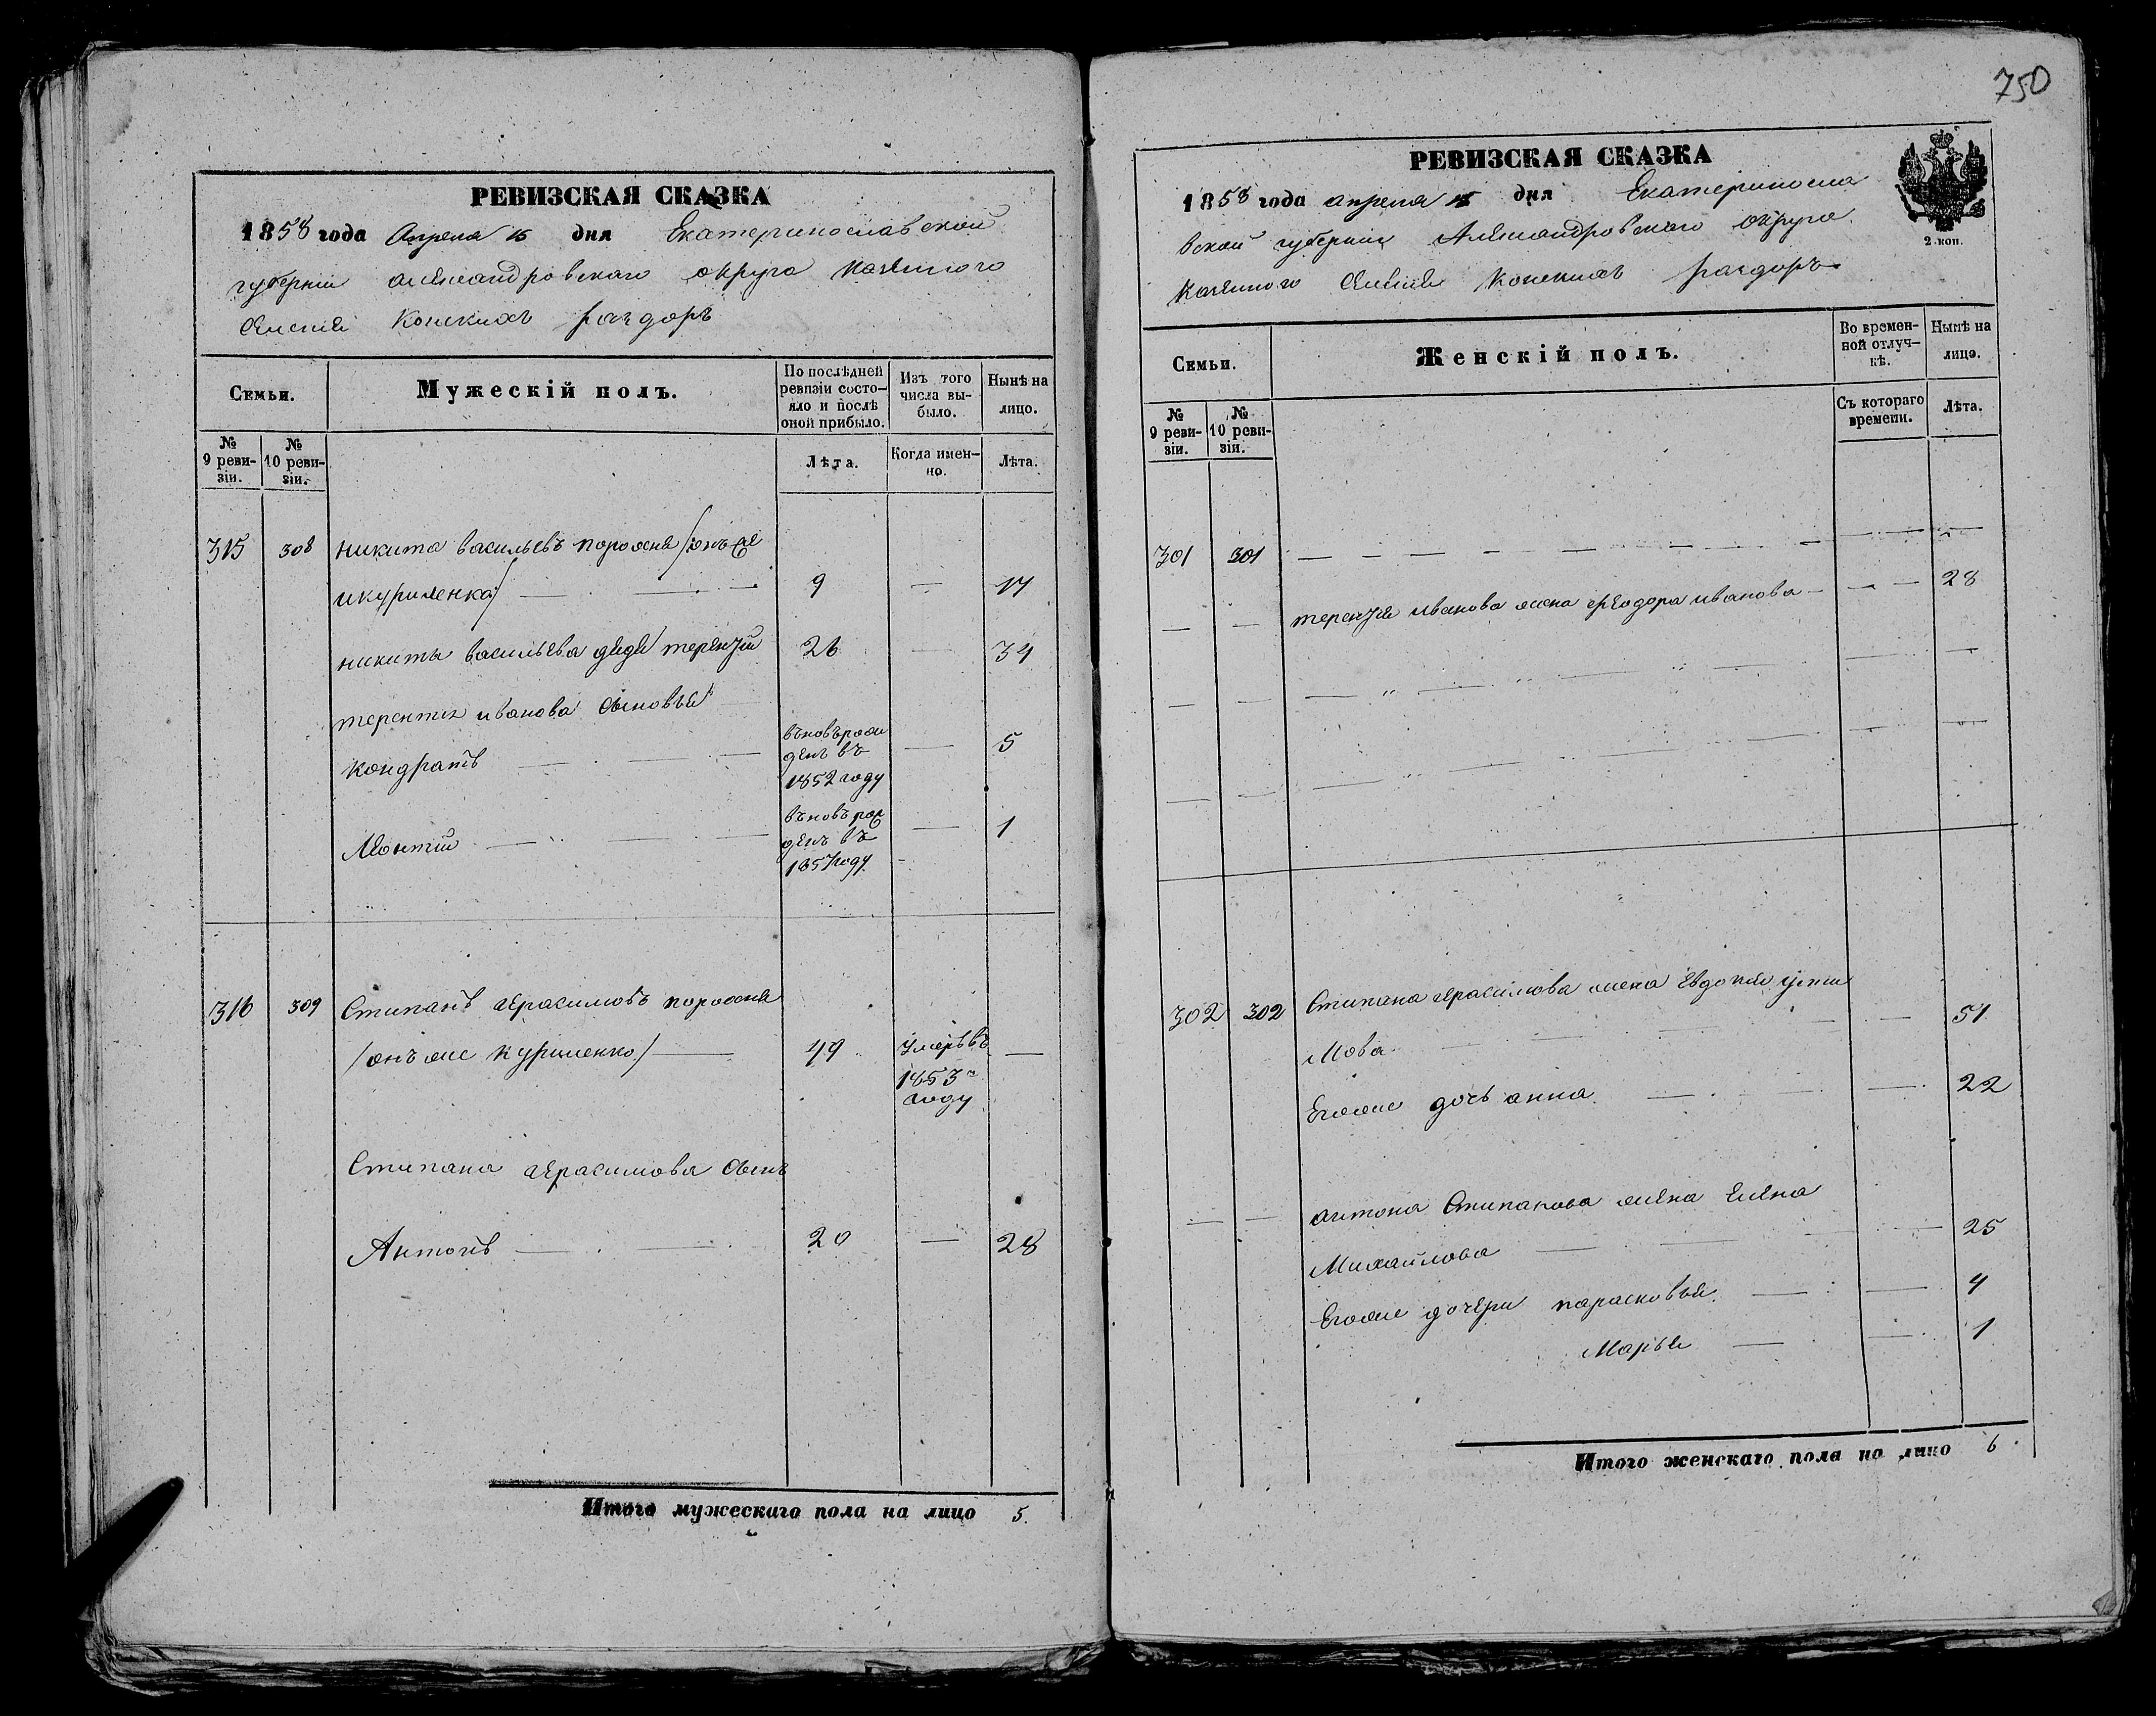 РЕВИЗСКАЯ СКАЗКА
1858 года Апреля 15 дня Екатеринославской
губернии александровскаго округа казенного
селения Конских раздоръ
Семьи.
Мужескій полъ.
По послѣдней ревизіи состояло и послѣ оной прибыло.
Изъ того числа выбыло.
Нынѣ на лицо.
№ 9 ревизіи.
№ 10 ревизіи.
Лѣта.
Когда именно.
Лѣта.
315 308 никита васильевъ порохня /онъже
икуриленка/ 9 — 17
никиты васильева дядя терентій 26 — 34
терентія иванова сыновья
Кондратъ въновърожденъ въ 1852 году — 5
Леонтий въновъ рожденъ въ 1857 году — 1
316 309 Стипанъ герасимовъ порохня
/онъ же куриленко/ 49 Умеръ въ 1853 году —
Стипана герасимова сынъ
Антонъ 20 — 28
Итого мужескаго пола на лицо 5.
750
РЕВИЗСКАЯ СКАЗКА
1858 года апреля 15 дня Екатеринославской
губернии Александровскаго округа
казенного селения Конскихъ раздоръ
2 коп.
Семьи.
Женскій полъ.
Во временной отлучкѣ.
Нынѣ на лицо.
№ 9 ревизіи.
№ 10 ревизіи.
Съ котораго времени.
Лѣта.
301 301
терентия иванова жена феодора иванова — 28
302 302 Стипана герасимова жена Евдокия
мова — 51
Егоже дочь анна — 22
антона Стипанова жена Елена
Михайлова — 25
Егоже дочери парасковья — 4
Марья — 1
Итого женскаго пола на лицо 6.